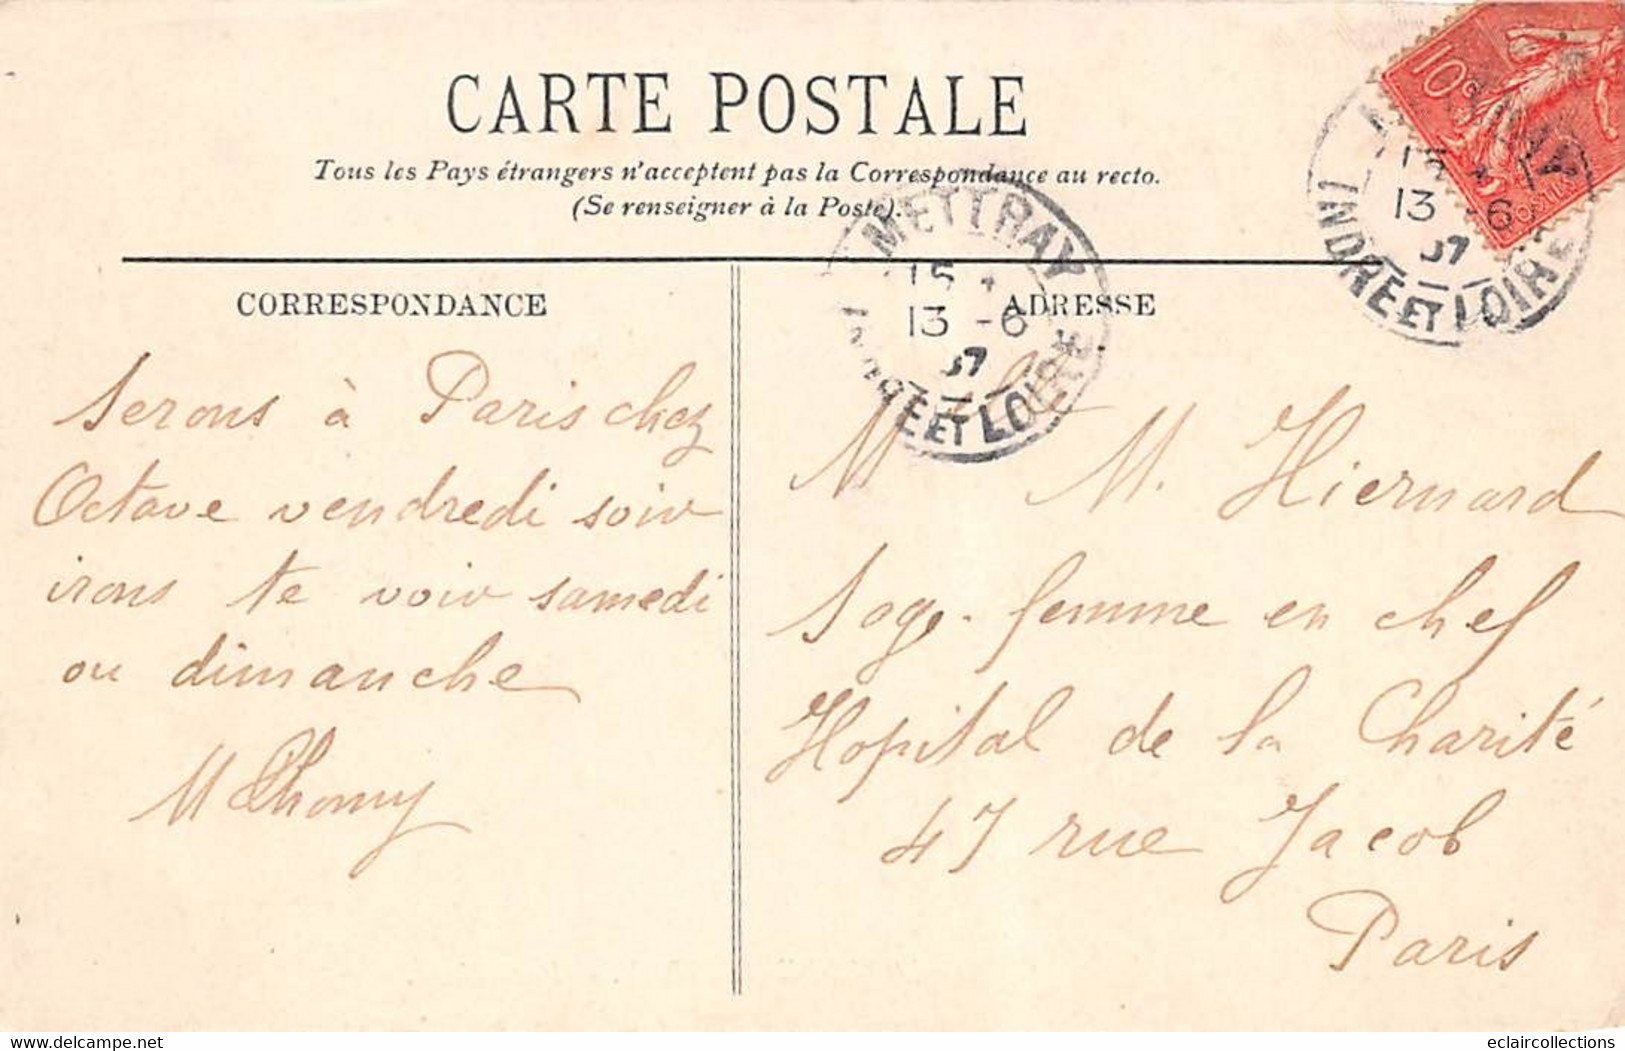 CARTE POSTALE
Tous les Pays étrangers n'acceptent pas la Correspondance au recto.
(Se renseigner à la Poste).
METTRAY
13 -6
07
INDRE ET LOIRE
10c
13 -6
07
INDRE ET LOIRE
CORRESPONDANCE
Serons à Paris chez
Octave vendredi soir
irons te voir samedi
ou dimanche
ADRESSE
M M. Hiernard
Sage-femme en chef
Hopital de la Charité
47 rue Jacob
Paris
www.delcampe.net
eclaircollections